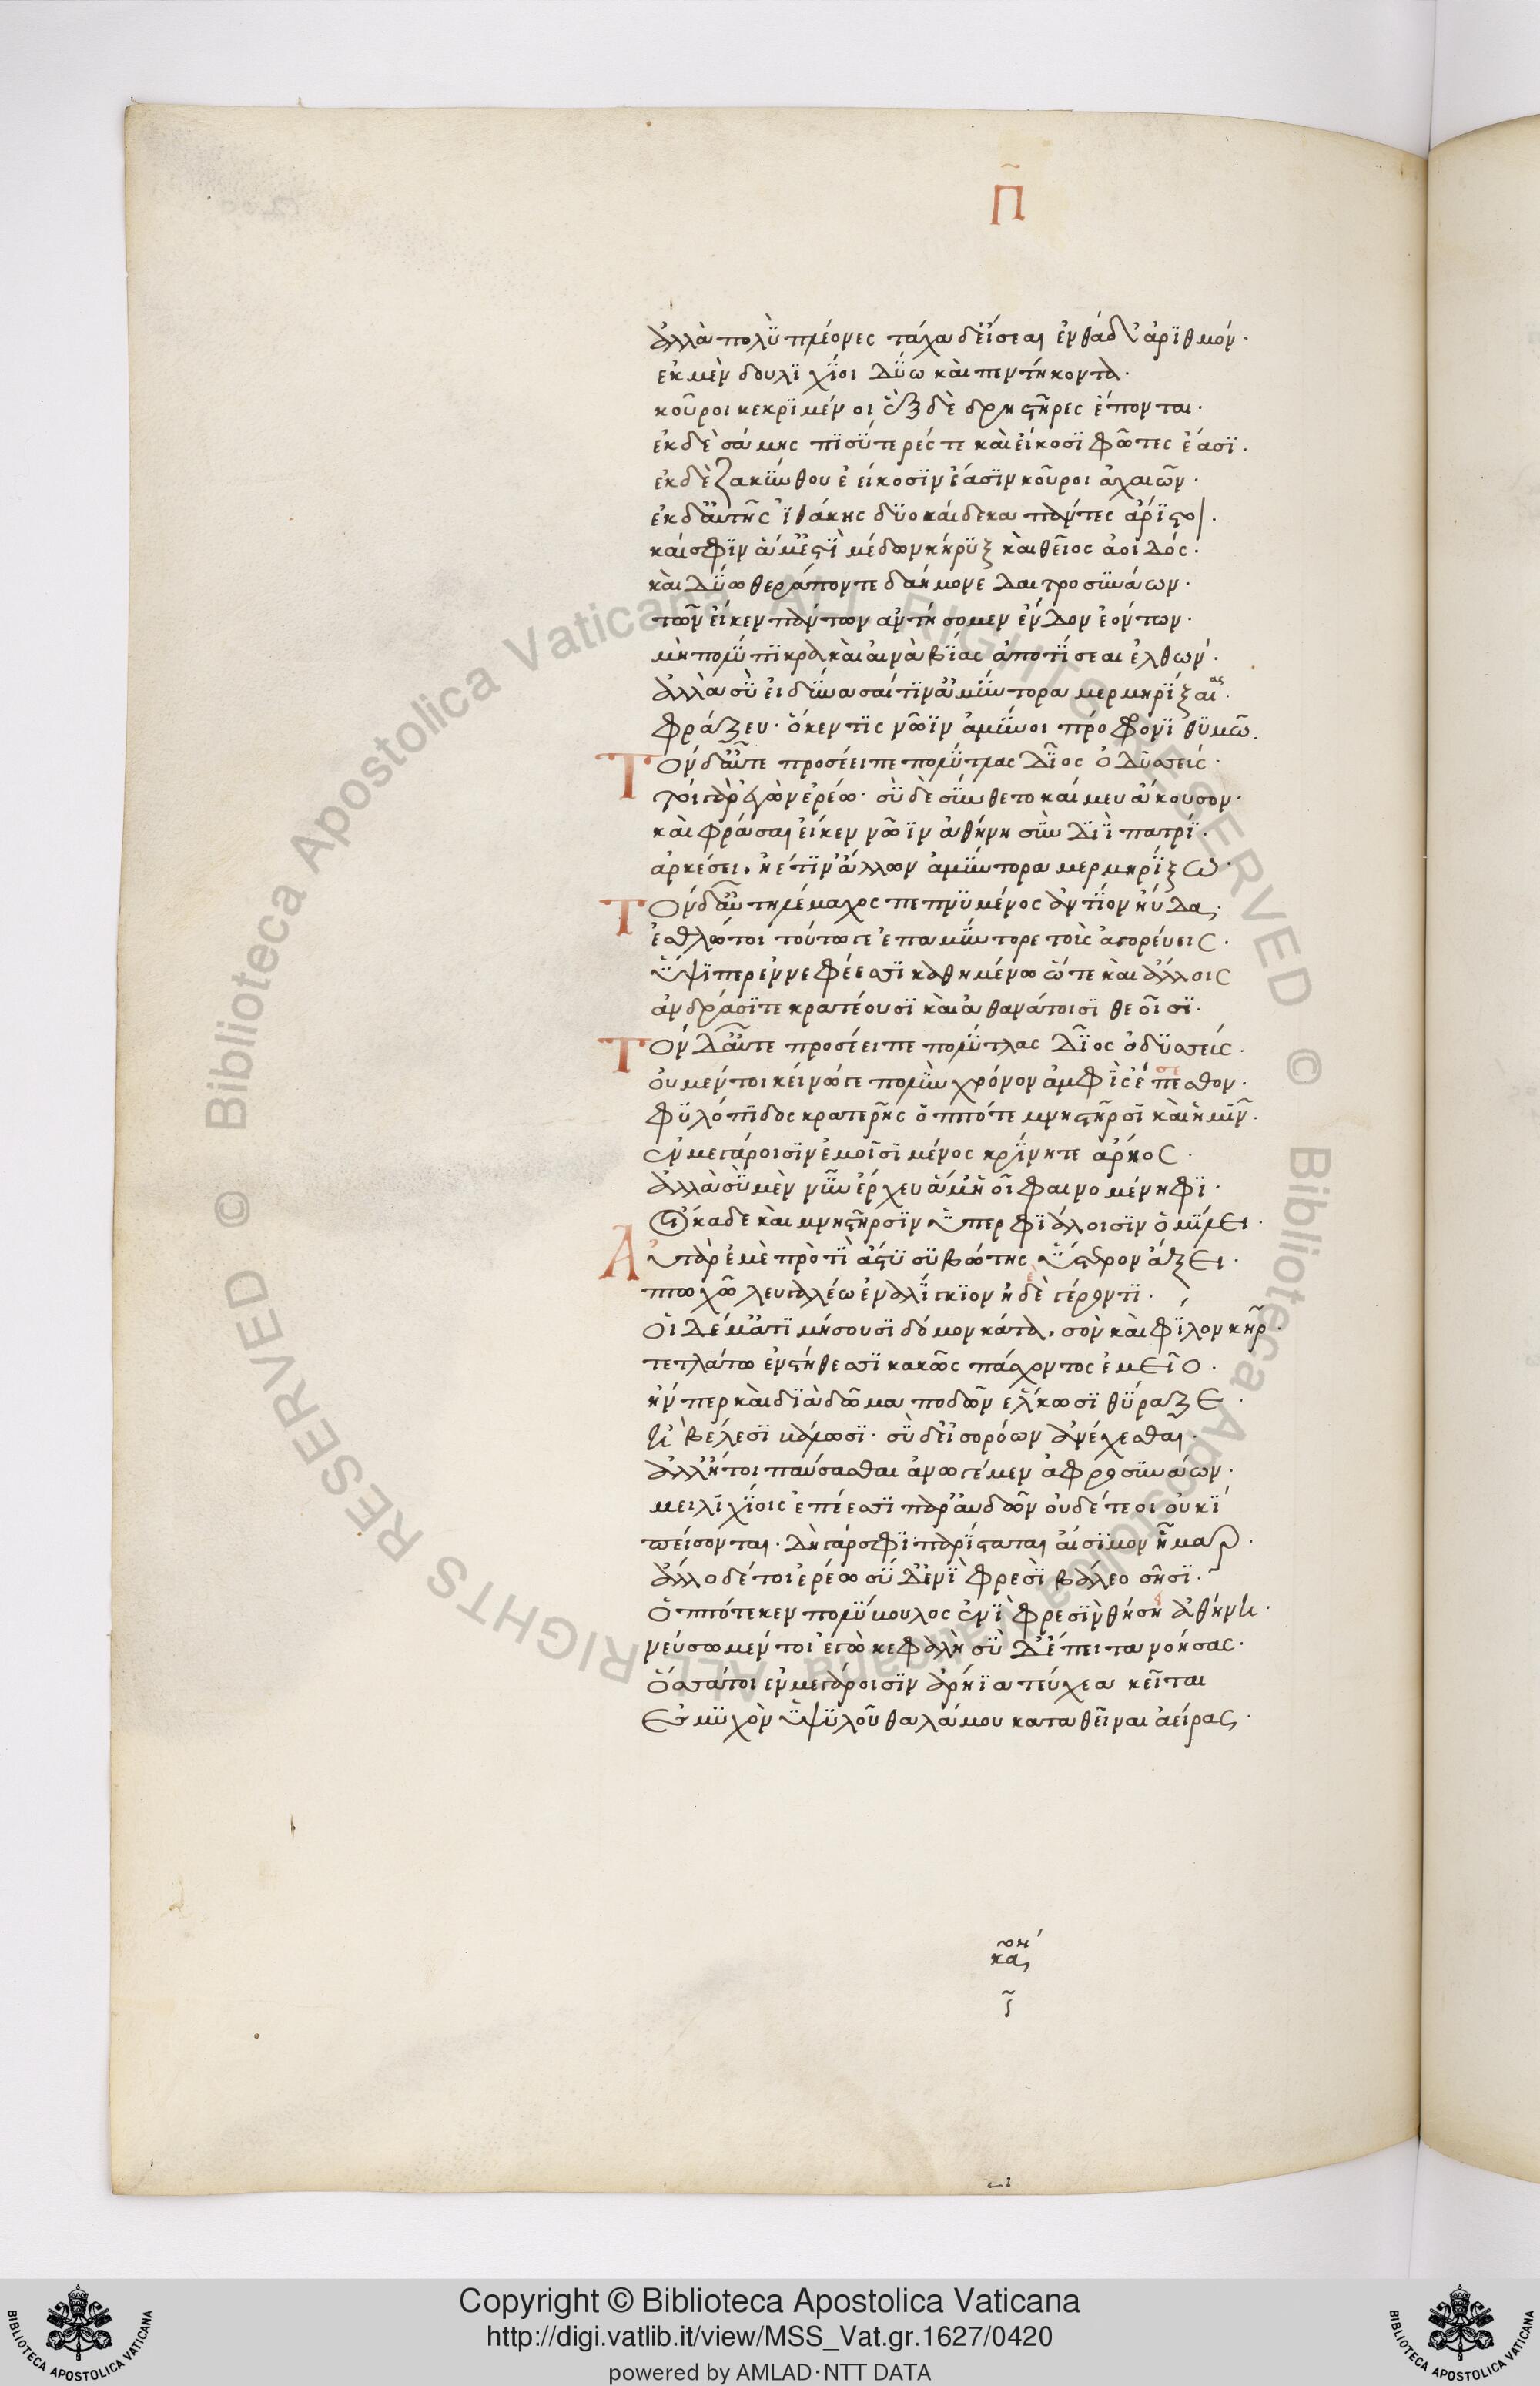 Π̃
ἀλλὰ πολὺ πλέονες τάχα δ' εἴσεαι ἐνθάδ' ἀρϊθμόν·
ἐκ μὲν δουλϊχΐοι δΰω καὶ πεντήκοντα·
κοῦροι κεκρϊμένοι ἓξ δὲ δρηστῆρες ἕπονται·
ἐκ δὲ σάμης πϊσΰρές τε καὶ εἴκοσϊ φῶτες ἔασϊ·
ἐκ δὲ ζακΰνθου ἐείκοσϊν ἔασϊν κοῦροι ἀχαιῶν·
ἐκ δ' αὐτῆς ἰθάκης δϋοκαίδεκα πάντες ἄρϊστοι·
καί σφϊν ἅμ' ἐστῒ μέδων κήρϋξ καὶ θεῖος ἀοιδός·
καὶ δΰω θεράποντε δαήμονε δαιτροσϋνάων·
τῶν εἴκεν πάντων ἀντήσομεν ἔνδον ἐόντων·
μὴ πολΰπϊκρα καὶ αἰνὰ βΐας ἀποτΐσεαι ἐλθών·
ἀλλὰ σὺ εἰ δΰνασαί τϊν' ἀμΰντορα μερμηρΐξαι·
φράζευ· ὅ κέν τϊς νῶϊν ἀμΰνοι πρόφρονϊ θϋμῶ.
Τὸν δ' αὖτε προσέειπε πολΰτλας δῖος ὀδϋσσεύς·
τοὶ γὰρ ἐγὼν ἐρέω· σὺ δὲ σΰνθεο καί μευ ἄκουσον·
καὶ φράσαι εἴκεν νῶϊν ἀθήνη σὺν Δϊῒ πατρϊ·
ἀρκέσει· ἠέ τϊν' ἄλλον ἀμΰντορα μερμηρΐξω·
Τὸν δ' αὖ τηλέμαχος πεπνϋμένος ἀντΐον ηὔδα·
ἐσθλώ τοι τούτω γ' ἐπαμΰντορε τοὺς ἀγορεύεις·
ὕψϊ περ ἐν νεφέεσσϊ καθημένω ὥτε καὶ ἄλλοις
ἀνδράσϊ τε κρατέουσϊ καὶ ἀθανάτοισϊ θεοῖσϊ·
Τὸν δ' αὖτε προσέειπε πολΰτλας δῖος ὀδϋσσεύς·
οὐ μέν τοι κείνω γε πολὺν χρόνον ἀμφὶς ἔσεσθον·
φϋλόπϊδος κρατερῆς ὁππότε μνηστῆρσϊ καὶ ἡμῖν·
ἐν μεγάροισϊν ἐμοῖσϊ μένος κρΐνητε ἄρηος·
ἀλλὰ σὺ μὲν νῦν ἔρχευ ἅμ' ἠοῖ φαινομένηφϊ·
Οἴκαδε καὶ μνηστῆρσϊν ὑπερφϊάλοισϊν ὁμΐλει·
Αὐτὰρ ἐμὲ προτῒ ἄστϋ σϋβώτης ὕστερον ἄξει·
πτωχῶ λευγαλέω ἐναλΐγκϊον ἠδὲ γέροντϊ·
Οἱ δέ μ' ἀτϊμήσουσϊ δόμον κάτα, σὸν καὶ φΐλον κῆρ·
τετλάτω ἐν στήθεσσϊ κακῶς πάσχοντος ἐμεῖο·
ἤν περ καὶ δϊὰ δῶμα ποδῶν ἕλκωσϊ θΰραζε·
ἢ βέλεσϊ βάλλωσϊ· σὺ δ' εἰσορόων ἀνέχεσθαι·
ἀλλ' ἤτοι παύσασθαι ἀνωγέμεν ἀφροσϋνάων·
μειλϊχΐοις ἐπέεσσϊ παραυδῶν οὐδέ τε οἱ οὐκΐ
πείσονται· δὴ γάρ σφϊ παρΐσταται αἴσϊμον ἦμαρ·
ἄλλο δέ τοι ἐρέω σὺ δ' ἐνῒ φρεσῒ βάλλεο σῆσϊ·
Ὁππότε κεν πολΰβουλος ἐνῒ φρεσϊν θήση ἀθήνη·
νεύσω μέν τοι ἐγὼ κεφαλῆ σὺ δ' ἔπειτα νοήσας·
ὅσσά τοι ἐν μεγάροισϊν ἀρήϊα τεύχεα κεῖται
Ἐς μϋχὸν ὑψϋλοῦ θαλάμου καταθεῖναι ἀείρας·
Copyright © Biblioteca Apostolica Vaticana
http://digi.vatlib.it/view/MSS_Vat.gr.1627/0420
powered by AMLAD·NTT DATA